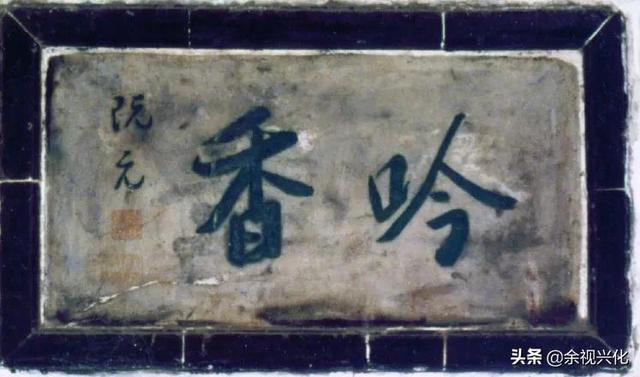 吟香
阮元
头条 @余视兴化